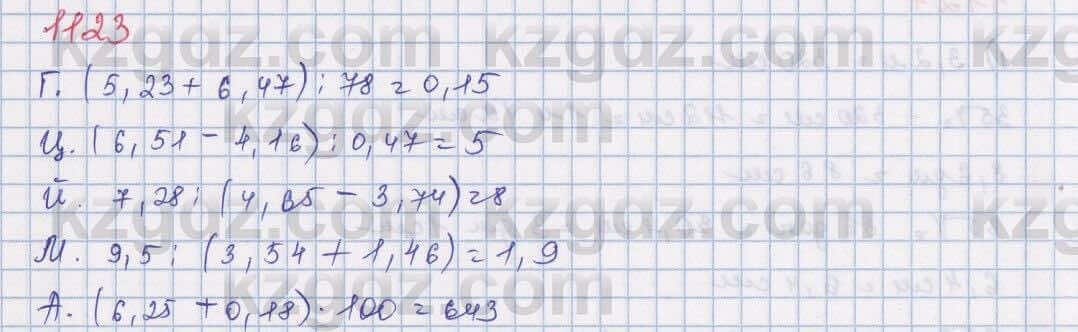 1123
kzgdz.com kzgdz.com
Г. (5,23 + 6,47) : 78 = 0,15
Ц. (6,51 - 4,16) : 0,47 = 5
Й. 7,28 : (4,65 - 3,74) = 8
М. 9,5 : (3,54 + 1,46) = 1,9
А. (6,25 + 0,18) · 100 = 643